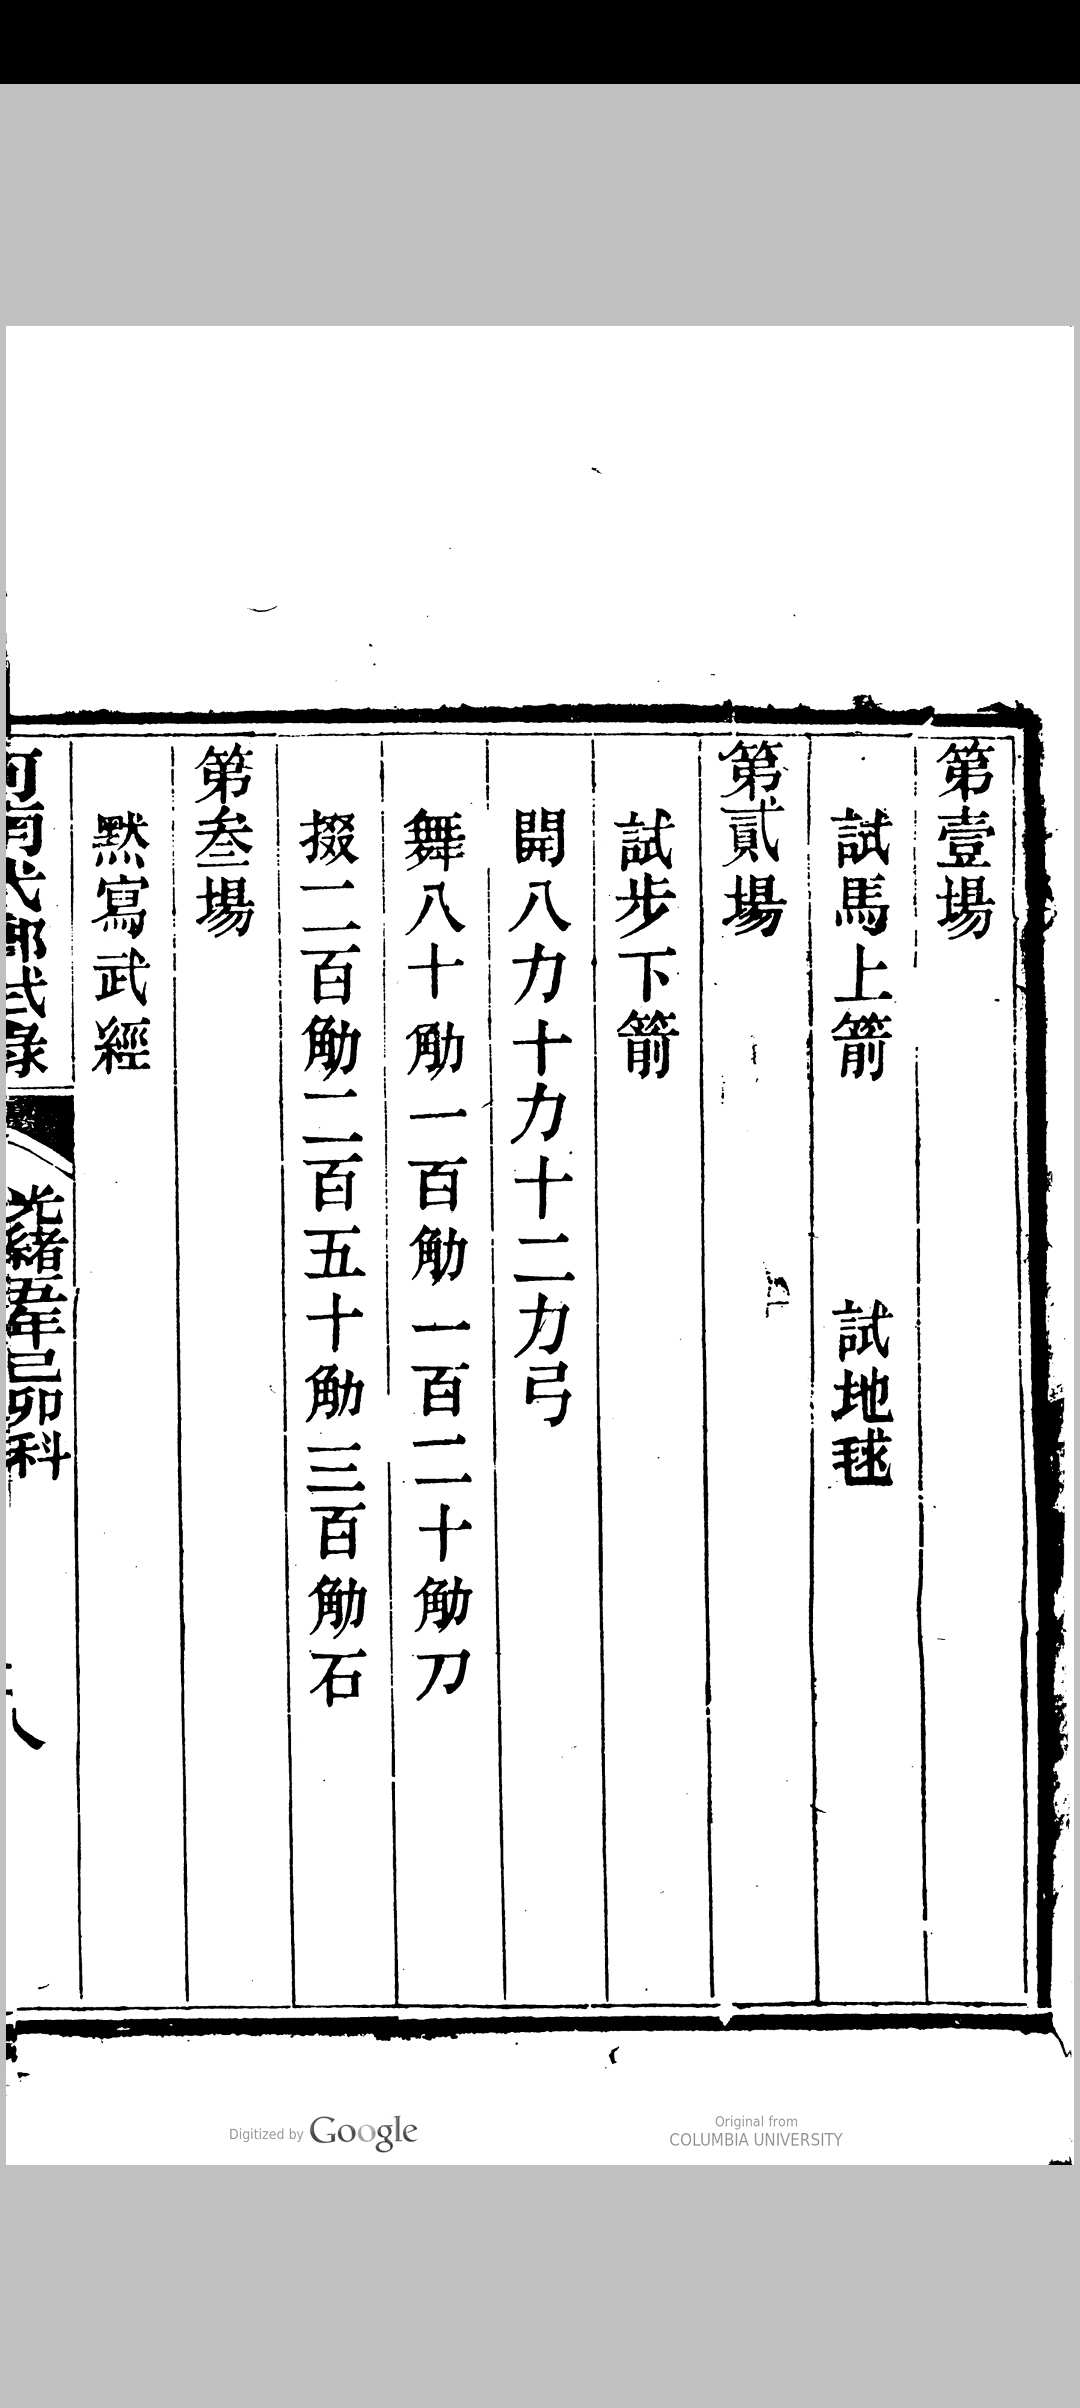 第壹場
試馬上箭 試地毬
第貳場
試步下箭
開八力十力十二力弓
舞八十觔一百觔一百二十觔刀
掇二百觔二百五十觔三百觔石
第叁場
默寫武經
河南武鄉試錄 光緒五年己卯科 八
Digitized by Google
Original from
COLUMBIA UNIVERSITY